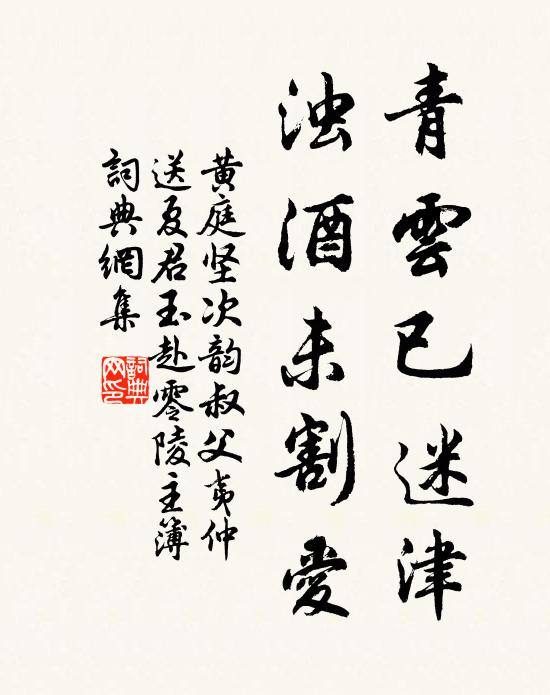 青雲已迷津
浊酒未割愛
黄庭坚次韵叔父夷仲
送夏君玉赴零陵主簿
詞典網集
詞典
网印